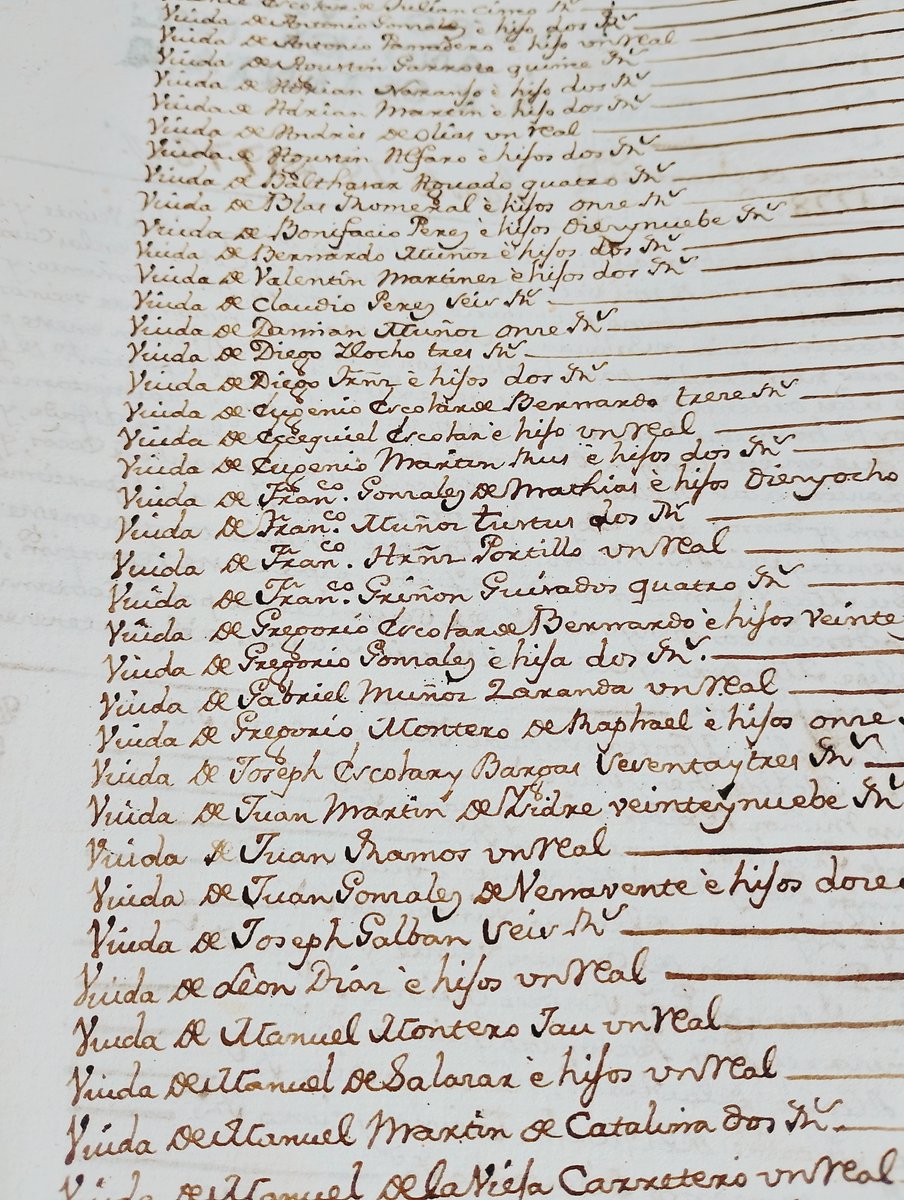 de Julian Cinco Rˢ
Viuda de Antonio Gonzalez è hijo dos Rˢ
Viuda de Antonio Panadero è hijo vn Real
Viuda de Agustin Garrote quinze Rˢ
Viuda de Adrian Naranjo è hijo dos Rˢ
Viuda de Adrian Martin è hijo dos Rˢ
Viuda de Andrès de Olias vn Real
Viuda de Agustin Alfaro è hijos dos Rˢ
Viuda de Balthasar Aguado quatro Rˢ
Viuda de Blas Romeral è hijos onze Rˢ
Viuda de Bonifacio Perez è hijos Diezynuebe Rˢ
Viuda de Bernardo Muñoz è hijos dos Rˢ
Viuda de Valentin Martinez è hijos dos Rˢ
Viuda de Claudio Perez Seis Rˢ
Viuda de Damian Muñoz onze Rˢ
Viuda de Diego Llocho tres Rˢ
Viuda de Diego Frñz è hijos dos Rˢ
Viuda de Eugenio Escolar de Bernardo treze Rˢ
Viuda de Ecequiel Escolar è hijo vn Real
Viuda de Eugenio Martin Rus è hijos dos Rˢ
Viuda de Franᶜᵒ. Gonzalez de Mathias è hijos Diezyocho
Viuda de Franᶜᵒ. Muñoz dos Rˢ
Viuda de Franᶜᵒ. Hrñz Portillo vn Real
Viuda de Franᶜᵒ. Griñon Guirados quatro Rˢ
Viuda de Gregorio Escolar de Bernardo è hijos veinte
Viuda de Gregorio Gonzalez è hija dos Rˢ.
Viuda de Gabriel Muñoz Zaranda vn Real
Viuda de Gregorio Montero de Raphael è hijos onze
Viuda de Joseph Escolar y Bargas Sesentaytres Rˢ
Viuda de Juan Martin de Ysidre veinteynuebe Rˢ
Viuda de Juan Ramos vn Real
Viuda de Juan Gonzalez de Venavente è hijos doze
Viuda de Joseph Galban Seis Rˢ
Viuda de Leon Diaz è hijos vn Real
Viuda de Manuel Montero Jau vn Real
Viuda de Manuel de Salazar è hijos vn Real
Viuda de Manuel Martin de Catalina dos Rˢ
Viuda de Manuel de la Vieja Carretero vn Real